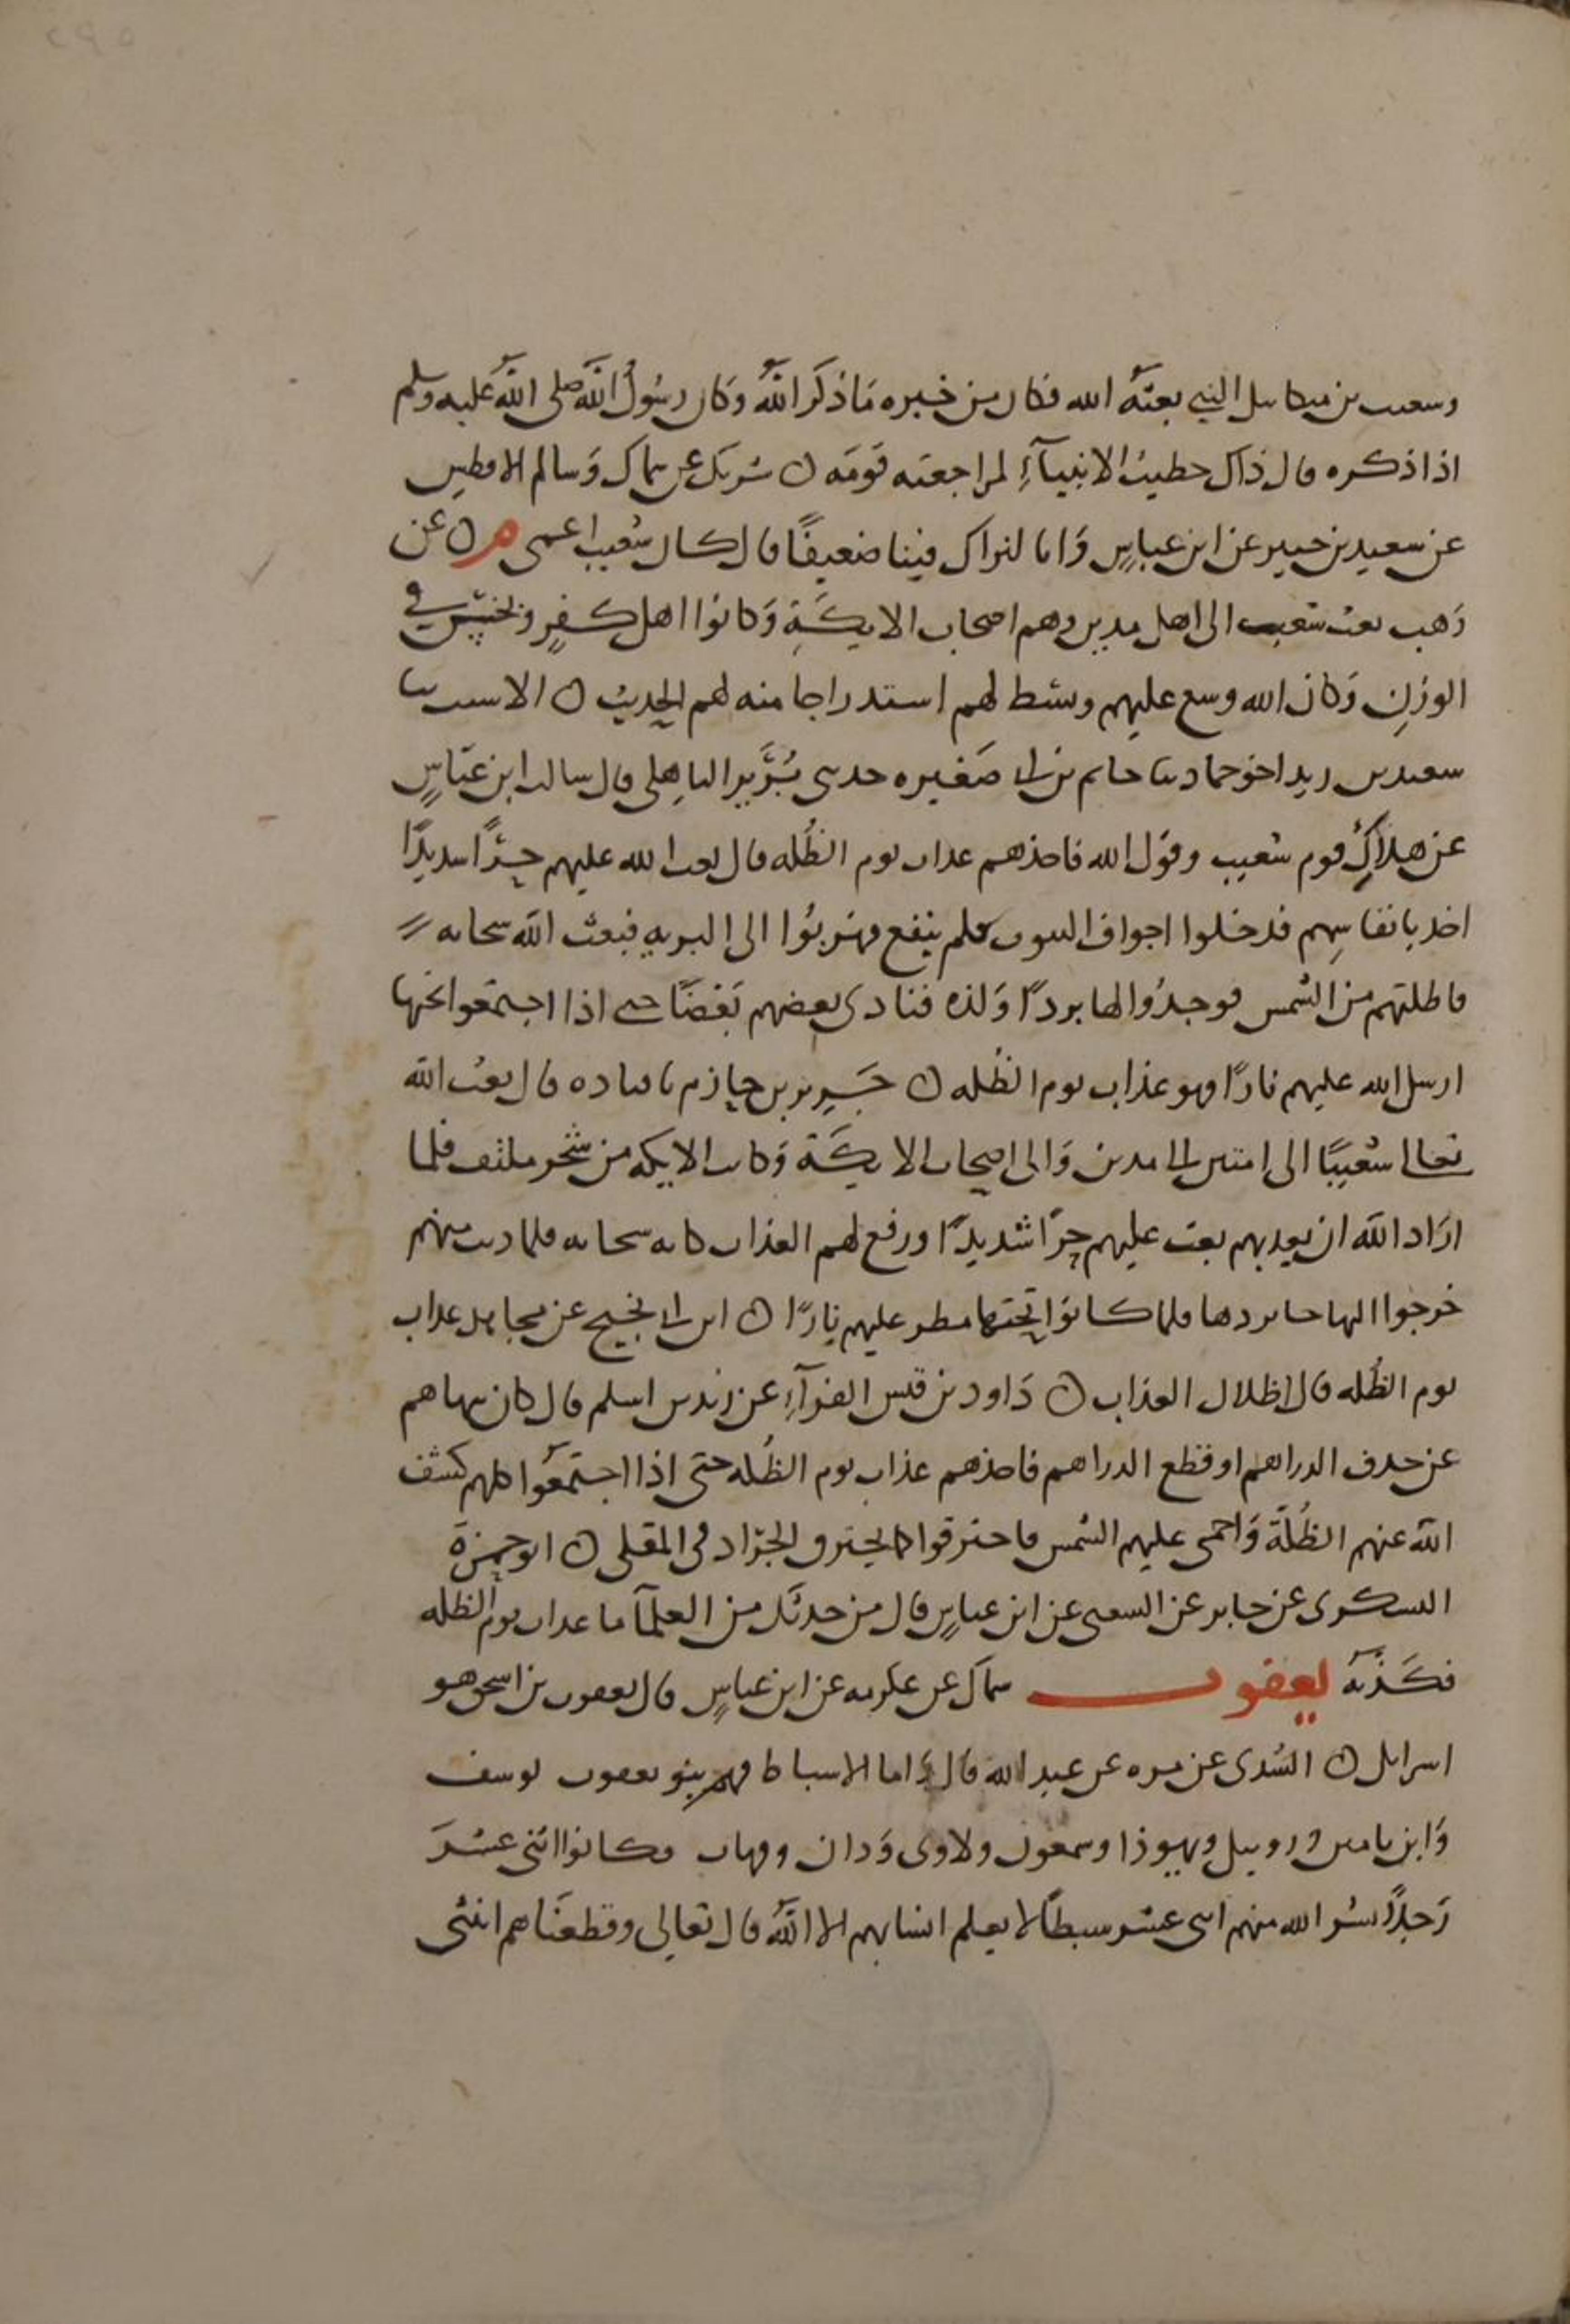 وشعيب بن ميكاييل النبي بعثه الله فكان من خبره ما ذكر الله وكان رسول الله صلى الله عليه وسلم
اذا ذكره قال ذاك خطيب الانبيآء لمراجعته قومه ن شريك عن سماك وسالم الافطس
عن سعيد بن جبير عن ابن عباس وانا لنراك فينا ضعيفا قال كان شعيب اعمى ن عن
وهب بعث شعيب الى اهل مدين وهم اصحاب الايكة وكانوا اهل كفر وبخس في
الوزن وكان الله وسع عليهم وبسط لهم استدراجا منه لهم الحديث ن الاشيب نا
سعيد بن زيد اخو حماد نا حاتم بن ابي صغيره حدثني بزير الباهلي قال سالت ابن عباس
عن هلاك قوم شعيب وقول الله فاخذهم عذاب يوم الظله قال بعث الله عليهم حرا شديدا
اخذ بانفاسهم فدخلوا اجواف البيوت فلم ينفع فهربوا الى البريه فبعث الله سحابه
فاظلتهم من الشمس فوجدوا لها بردا ولذه فنادى بعضهم بعضا حتى اذا اجتمعوا تحتها
ارسل الله عليهم نارا وهو عذاب يوم الظله ن جرير بن حازم نا قتاده قال بعث الله
تعالى شعيبا الى امتين الى مدين والى اصحاب الايكة وكانت الايكه من شجر ملتف فلما
اراد الله ان يعذبهم بعث عليهم حرا شديدا ورفع لهم العذاب كانه سحابه فلما دنت منهم
خرجوا اليها رجا بردها فلما كانوا تحتها مطر عليهم نارا ن ابن ابي نجيح عن مجاهد عذاب
يوم الظله قال اظلال العذاب ن داود بن قيس الفرآء عن زيد بن اسلم قال كان ينهاهم
عن حذف الدراهم او قطع الدراهم فاخذهم عذاب يوم الظله حتى اذا اجتمعوا كلهم كشف
الله عنهم الظلة واحمى عليهم الشمس فاحترقوا كما يحترق الجراد في المقلى ن ابو حمزة
السكري عن جابر عن الشعبي عن ابن عباس قال من حدثك من العلمآ ما عذاب يوم الظله
فكذبه يعقوب سماك عن عكرمه عن ابن عباس قال يعقوب بن اسحق هو
اسرايل ن السدي عن مره عن عبد الله قال واما الاسباط فهم بنو يعقوب يوسف
وابن يامين وروبيل ويهوذا وسمعون ولاوى ودان وقهاب فكانوا اثنى عشر
رجلا نشر الله منهم اثنى عشر سبطا لا يعلم انسابهم الا الله قال تعالى وقطعناهم اثنتى